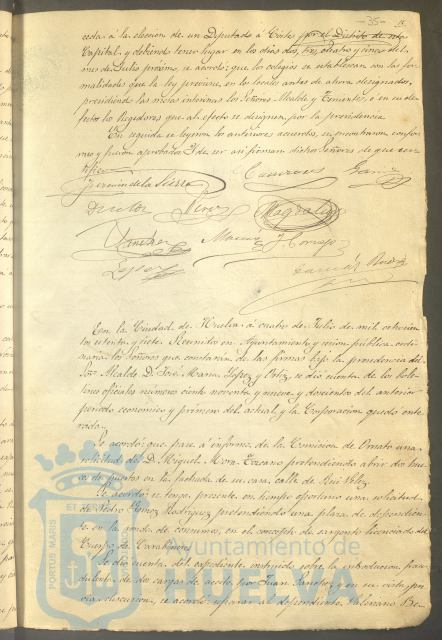 -35-
ceda á la elección de un Diputado á Cortes por el Distrito de esta
Capital, y debiendo tener lugar en los dias dos, tres, cuatro y cinco del
mes de Julio próximo, se acordó: que los colegios se establezcan con las for-
malidades que la ley previene, en los locales antes de ahora designados,
presidiendo las mesas interinas los Señores Alcalde y Tenientes, ó en su de-
fecto los Regidores que al efecto se designen por la presidencia.
En seguida se leyeron los anteriores acuerdos, se encontraron confor-
mes y fueron aprobados. Y de ser asi firman dichos Señores de que cer-
tifico.
de la Sierra
Perez
Sanchez
J. Cornejo
Lopez
En la Ciudad de Huelva á cuatro de Julio de mil ochocien
tos setenta y siete. Reunidos en Ayuntamiento y sesion pública ordi
naria los Señores que constarán de las firmas bajo la presidencia del
Sor. Alcalde D. José Maria Lopez y Ortiz, se dió cuenta de los bole-
tines oficiales número ciento noventa y nueve y doscientos del anterior
periodo economico y primero del actual, y la Corporacion quedó ente
rada.
Se acordó: que pase á informe de la Comision de Ornato una
solicitud de D. Miguel Mora pretendiendo abrir dos hue
cos de puertas en la fachada de su casa, calle de Rui Velez.
Se acordó: se tenga presente en tiempo oportuno una solicitud
de Pedro Gomez Rodriguez pretendiendo una plaza de dependien
te en la ronda de consumos, en el concepto de sargento licenciado del
Cuerpo de Carabineros.
Se dió cuenta del expediente instruido sobre la introduccion frau
dulenta de dos cargas de aceite, por Juan Sanchez, y en su vista, pre
via discusion, se acordó separar al dependiente Valeriano Be-
PORTUS MARIS ET
Ayuntamiento de
HUELVA